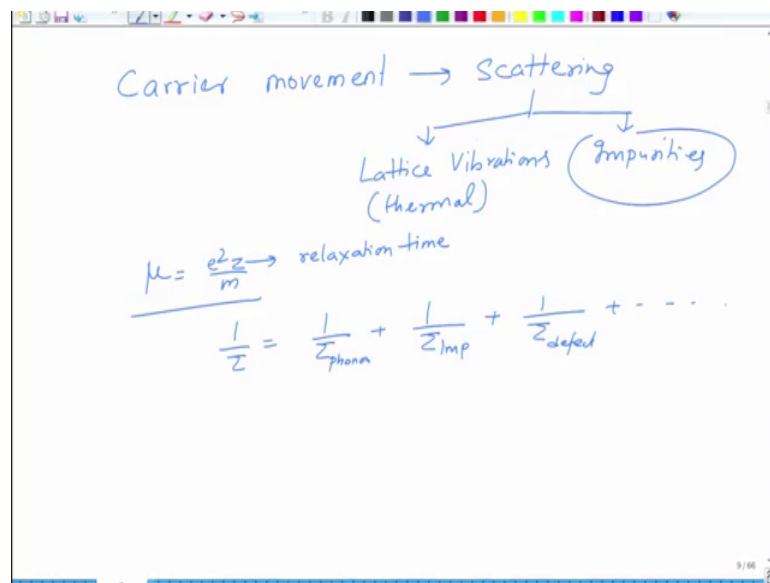 Carrier movement → Scattering
Lattice Vibrations
(thermal)
Impurities
μ = e²τ/m → relaxation time
1/τ = 1/τ_phonon + 1/τ_Imp + 1/τ_defect + - - - .
9/66